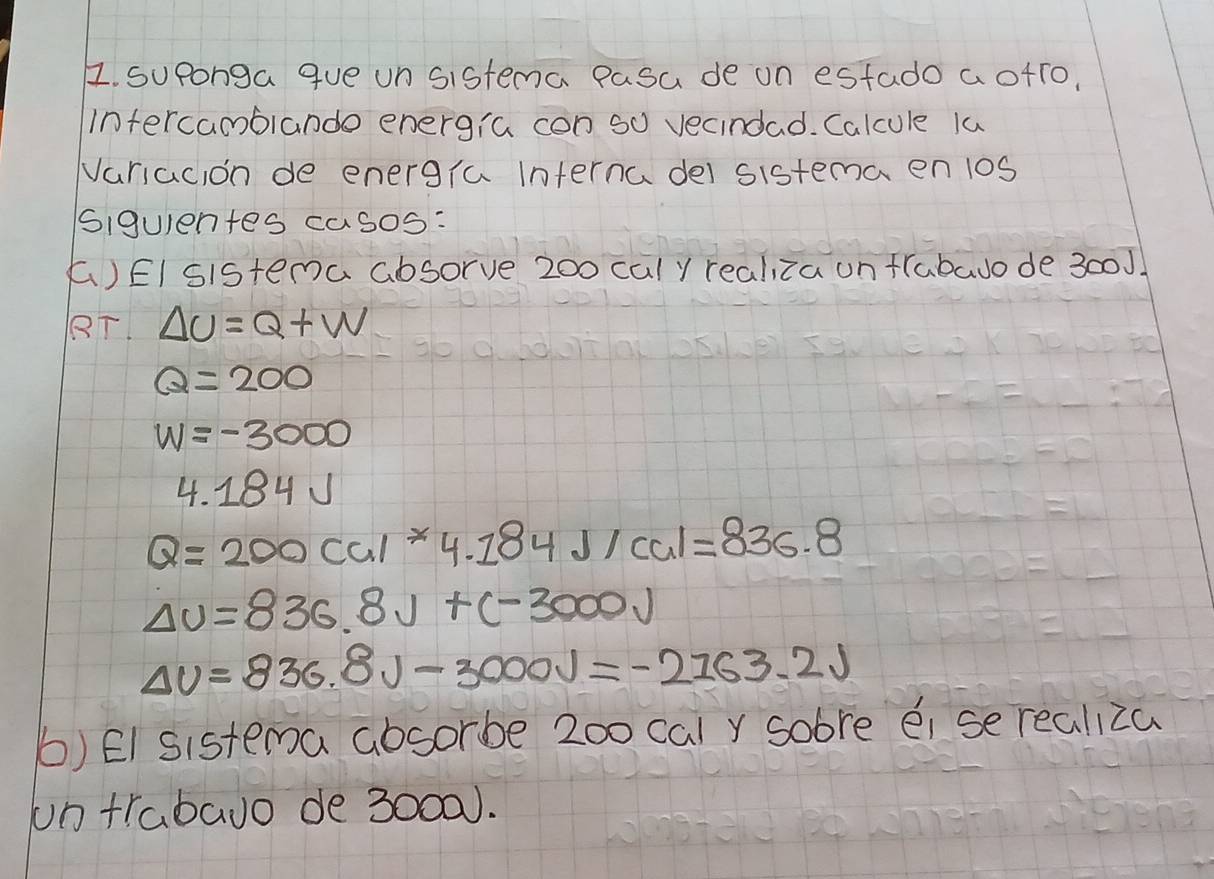 1. suponga que un sistema pasa de un estado a otro,
intercambiando energía con su vecindad. Calcule la
variación de energía interna del sistema en los
siguientes casos:
a) El sistema absorve 200 cal y realiza un trabajo de 300J.
RT. ΔU=Q+W
Q=200
W=-3000
4.184 J
Q=200 cal *4.184 J/cal=836.8
ΔU=836.8J +(-3000J
ΔU=836.8J-3000J=-2163.2J
b) El sistema absorbe 200 cal y sobre él se realiza
un trabajo de 3000J.